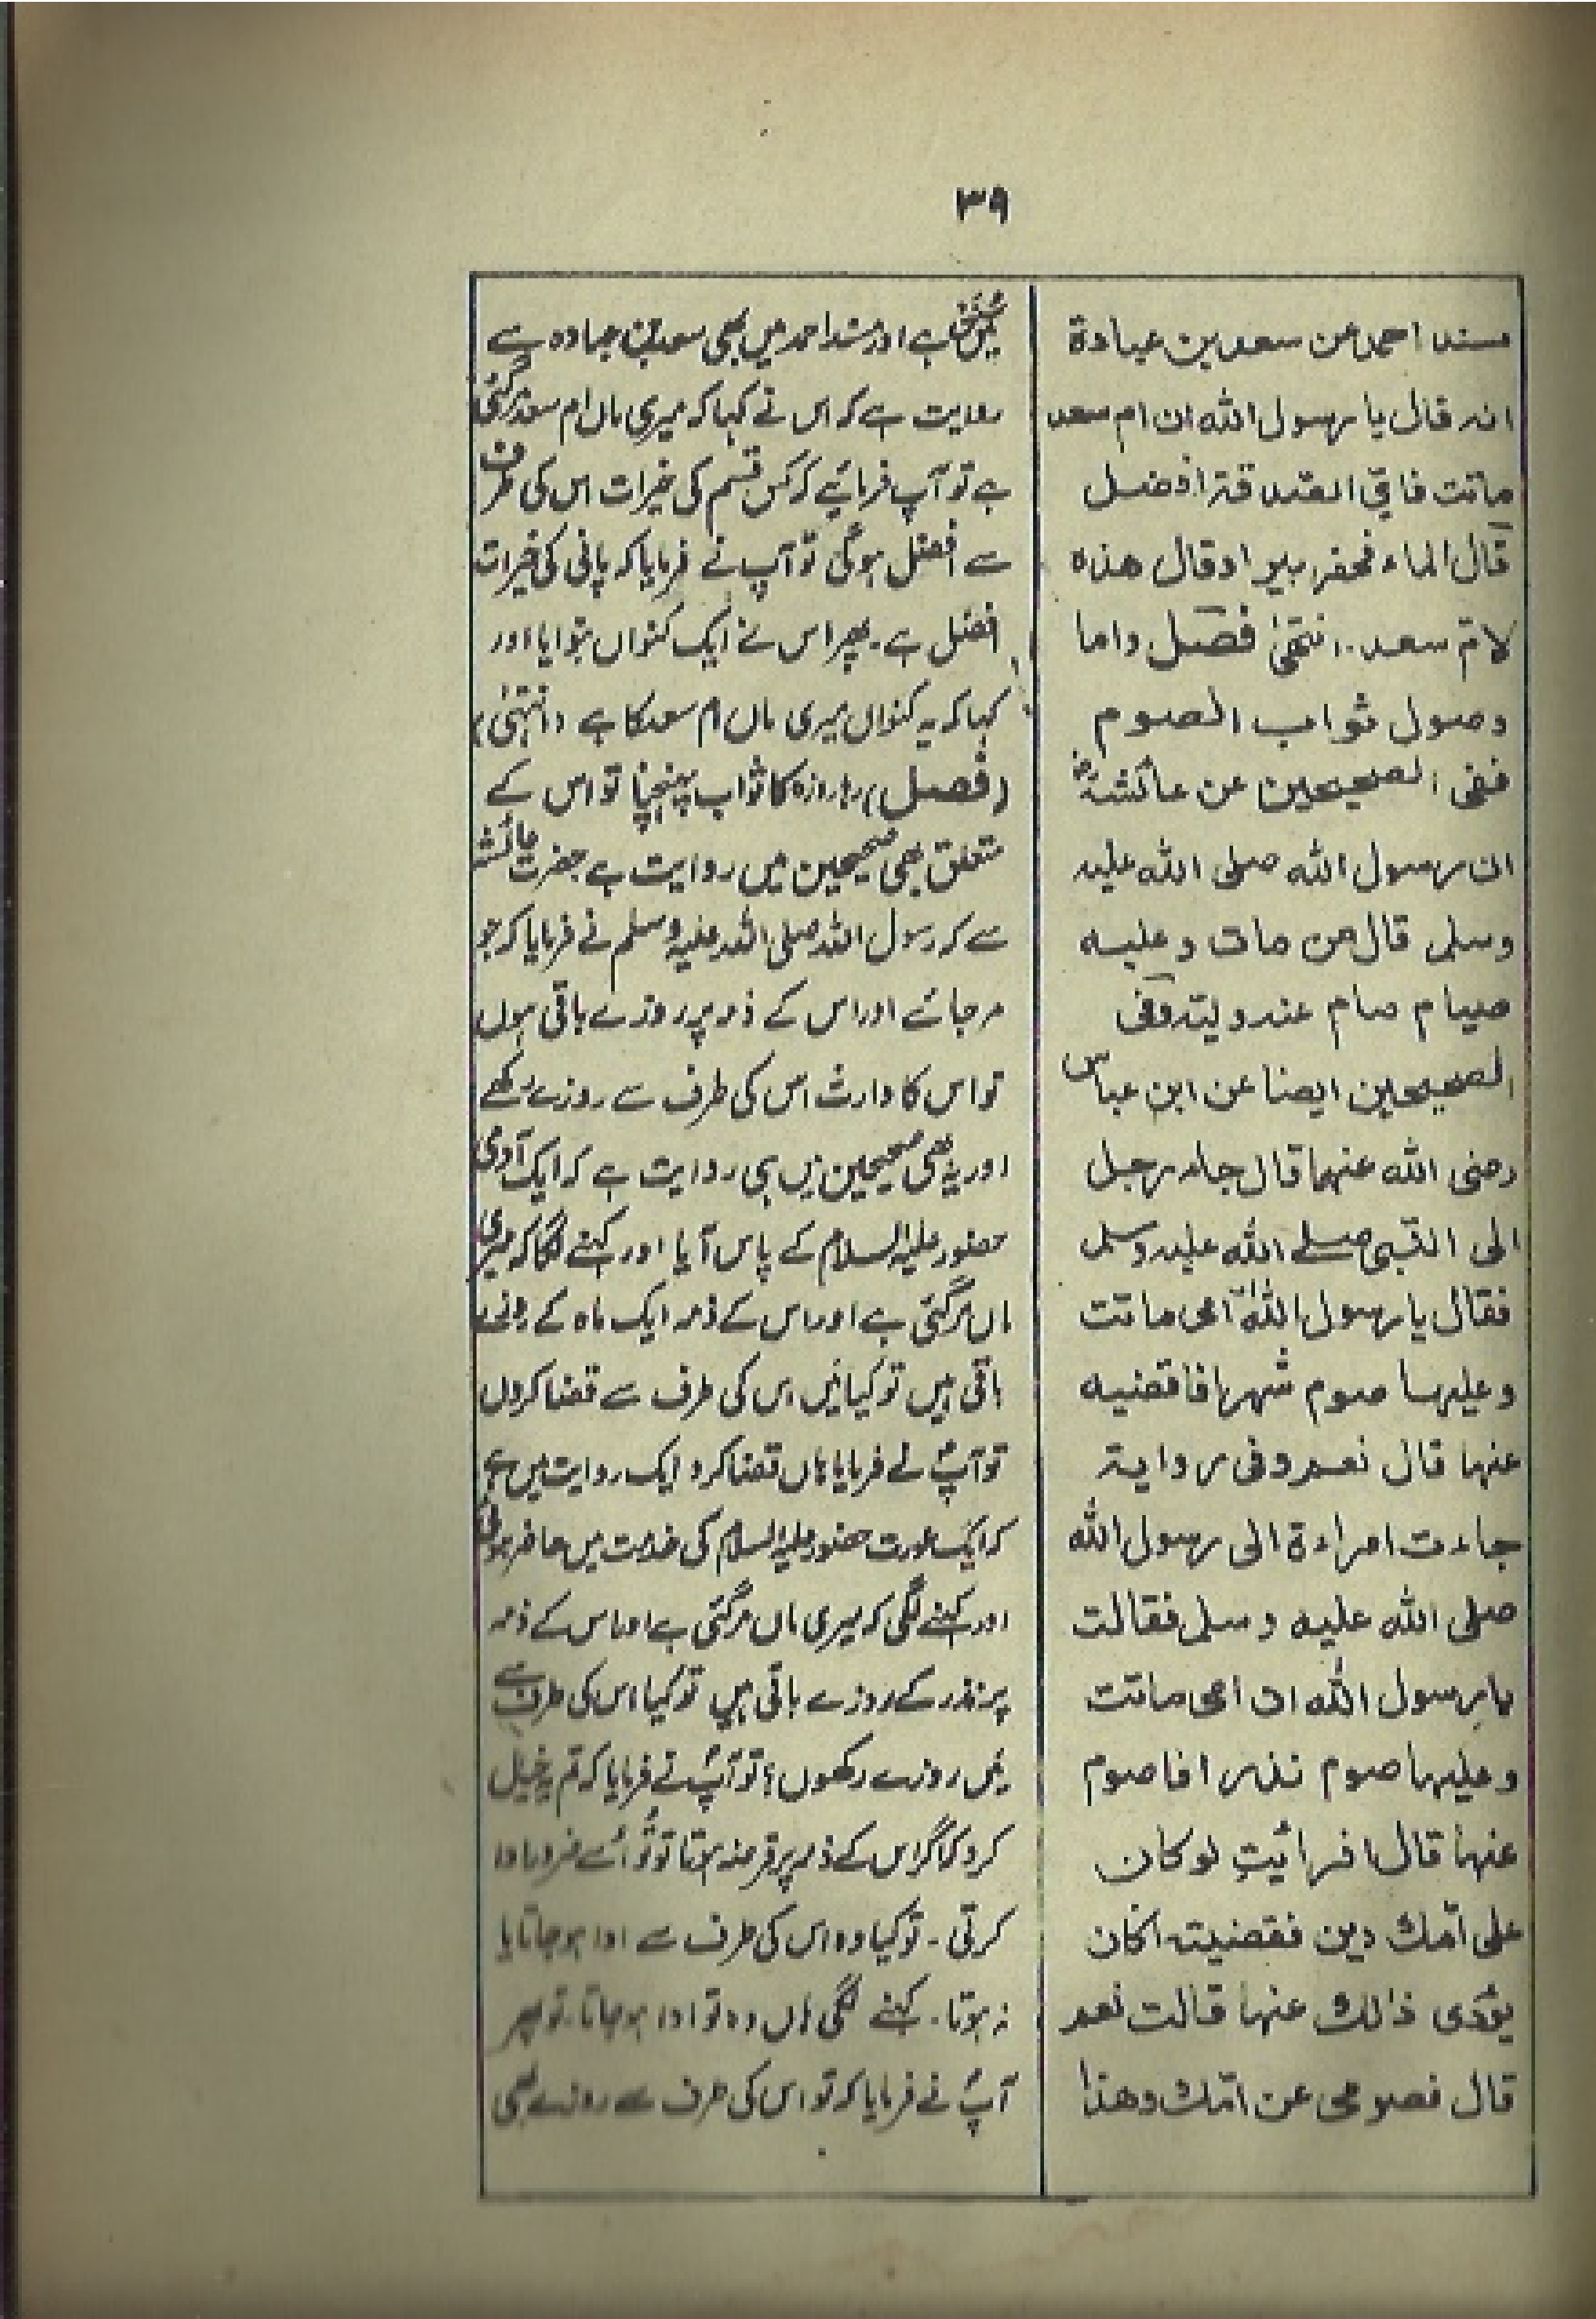 ۳۹
مسند احمد عن سعد بن عبادة
انہ قال یا رسول اللہ ان ام سعد
ماتت فای الصدقۃ افضل
قال الماء فحفر بیرا وقال ھذہ
لام سعد۔ انتھیٰ فصل واما
وصول ثواب الصوم
ففی الصحیحین عن عائشۃؓ
ان رسول اللہ صلی اللہ علیہ
وسلم قال من مات وعلیہ
صیام صام عنہ ولیتہ وفی
الصحیحین ایضا عن ابن عباس
رضی اللہ عنھما قال جاء رجل
الی النبی صلے اللہ علیہ وسلم
فقال یا رسول اللہ ان امی ماتت
وعلیہا صوم شھر افاقضیہ
عنہا قال نعم وفی روایۃ
جاءت امراءۃ الی رسول اللہ
صلی اللہ علیہ وسلم فقالت
یا رسول اللہ ان امی ماتت
وعلیہا صوم نذر افاصوم
عنہا قال افرائیت لو کان
علی امک دین فقضیتہ اکان
یؤدی ذالک عنہا قالت نعم
قال فصومی عن امک وھذا
بے اور مسند احمد میں بھی سعد بن عبادہ سے
روایت ہے کہ اس نے کہا کہ میری ماں ام سعد مرگئی
ہے تو آپ فرمائیے کہ کس قسم کی خیرات اس کی طرف
سے افضل ہوگی تو آپ نے فرمایا کہ پانی کی خیرات
افضل ہے۔ پھر اس نے ایک کنواں بنوایا اور
کہا کہ یہ کنواں میری ماں ام سعد کا ہے (انتہیٰ)
(فصل) رہا روزہ کا ثواب پہنچنا تو اس کے
متعلق بھی صحیحین میں روایت ہے حضرت عائشہ
سے کہ رسول اللہ صلی اللہ علیہ وسلم نے فرمایا کہ جو
مرجائے اور اس کے ذمہ پر روزے باقی ہوں
تو اس کا وارث اس کی طرف سے روزے رکھے
اور یہ بھی صحیحین میں ہی روایت ہے کہ ایک آدمی
حضور علیہ السلام کے پاس آیا اور کہنے لگا کہ میری
ماں مرگئی ہے اور اس کے ذمہ ایک ماہ کے روزے
باقی ہیں تو کیا میں اس کی طرف سے قضا کروں
تو آپؐ نے فرمایا ہاں قضا کرو ایک روایت میں ہے
کہ ایک عورت حضور علیہ السلام کی خدمت میں حاضر ہوئی
اور کہنے لگی کہ میری ماں مرگئی ہے اور اس کے ذمہ
پر نذر کے روزے باقی ہیں تو کیا اس کی طرف سے
میں روزے رکھوں؟ تو آپؐ نے فرمایا کہ تم یہ خیال
کرو کہ اگر اس کے ذمہ پر قرضہ ہوتا تو تُو اُسے ضرور ادا
کرتی۔ تو کیا وہ اس کی طرف سے ادا ہوجاتا یا
نہ ہوتا۔ کہنے لگی ہاں وہ تو ادا ہوجاتا۔ تو پھر
آپؐ نے فرمایا کہ تو اس کی طرف سے روزے بھی